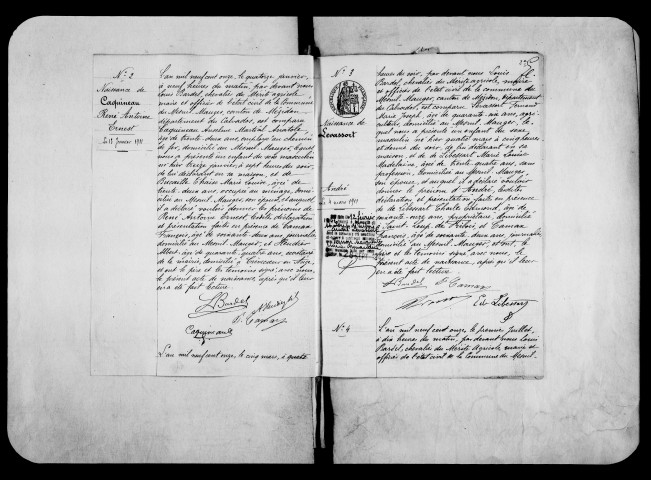 N° 2
Naissance de
Caquineau
René Antoine
Ernest
Le 13 Janvier 1911
L'an mil neuf cent onze, le quatorze janvier,
à neuf heures du matin, par devant nous
Louis Bardel, chevalier du Mérite agricole
maire et officier de l'état civil de la commune
du Mesnil Mauger, canton de Mézidon,
département du Calvados, est comparu
Caquineau Anselme Martial Anatole,
âgé de trente deux ans, employé au chemin
de fer, domicilié au Mesnil Mauger, lequel
nous a présenté un enfant du sexe masculin
né hier treize janvier, à sept heures du soir,
de lui déclarant en sa maison et de
Marie Louise, âgée de
trente deux ans occupée au ménage, domi-
ciliée au Mesnil Mauger, son épouse, et auquel
il a déclaré vouloir donner les prénoms de
René Antoine Ernest, lesdites déclaration
et présentation faites en présence de Tamar
François, âgé de soixante deux ans journalier
domicilié au Mesnil Mauger, et
Albert, âgé de quarante quatre ans, secrétaire
de la mairie, domicilié à Crèvecoeur en Auge,
et ont le père et les témoins signé avec nous,
le présent acte de naissance, après qu'il leur
en a été fait lecture.
L. Bardel
Caquineau
L'an mil neuf cent onze, le cinq mars, à quatre
N° 3
Naissance de
Levassort
André
Le 4 mars 1911
heures du soir, par devant nous Louis
Bardel, chevalier du Mérite agricole, maire
et officier de l'état civil de la commune du
Mesnil Mauger, canton de Mézidon, département
du Calvados, est comparu Levassort Fernand
Marie Joseph, âgé de quarante un ans, agri-
culteur, domicilié au Mesnil Mauger, le-
quel nous a présenté un enfant du sexe
masculin né hier quatre mars à cinq heures
du soir, de lui déclarant en sa
maison, et de Lebessort Marie Louise
Madeleine, âgée de trente quatre ans, sans
profession, domiciliée au Mesnil Mauger,
son épouse, et auquel il a déclaré vouloir
donner le prénom d'André, lesdites
déclaration et présentation faites en présence
de Lebessort Charles Edmond, âgé de
soixante onze ans, propriétaire, domicilié
à Saint Loup de Fribois, et Tamar
François, âgé de soixante deux ans, journalier
domicilié au Mesnil Mauger, et ont, le
père et les témoins signé avec nous, le
présent acte de naissance, après qu'il leur
en a été fait lecture.
L. Bardel
N° 4
L'an mil neuf cent onze, le premier Juillet,
à dix heures du matin, par devant nous Louis
Bardel, chevalier du Mérite Agricole maire et
officier de l'état civil de la commune du Mesnil-